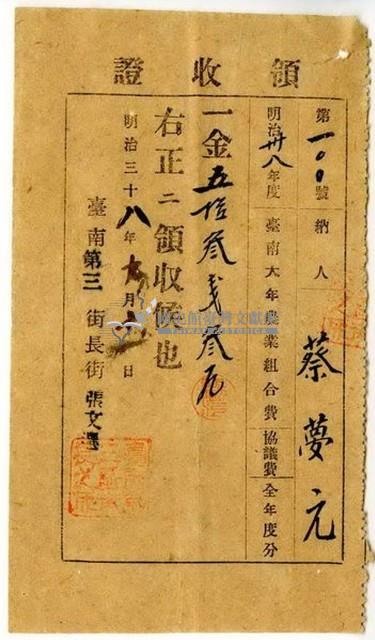 領收證
第一〇〇號 納人 蔡夢元
明治卅八年度 臺南大年農業組合費 協議費 全年度分
一金五拾叁戔叁厘
右正ニ領收候也
明治三十八年 月 日
臺南第三街長街 張文選
國史館臺灣文獻館